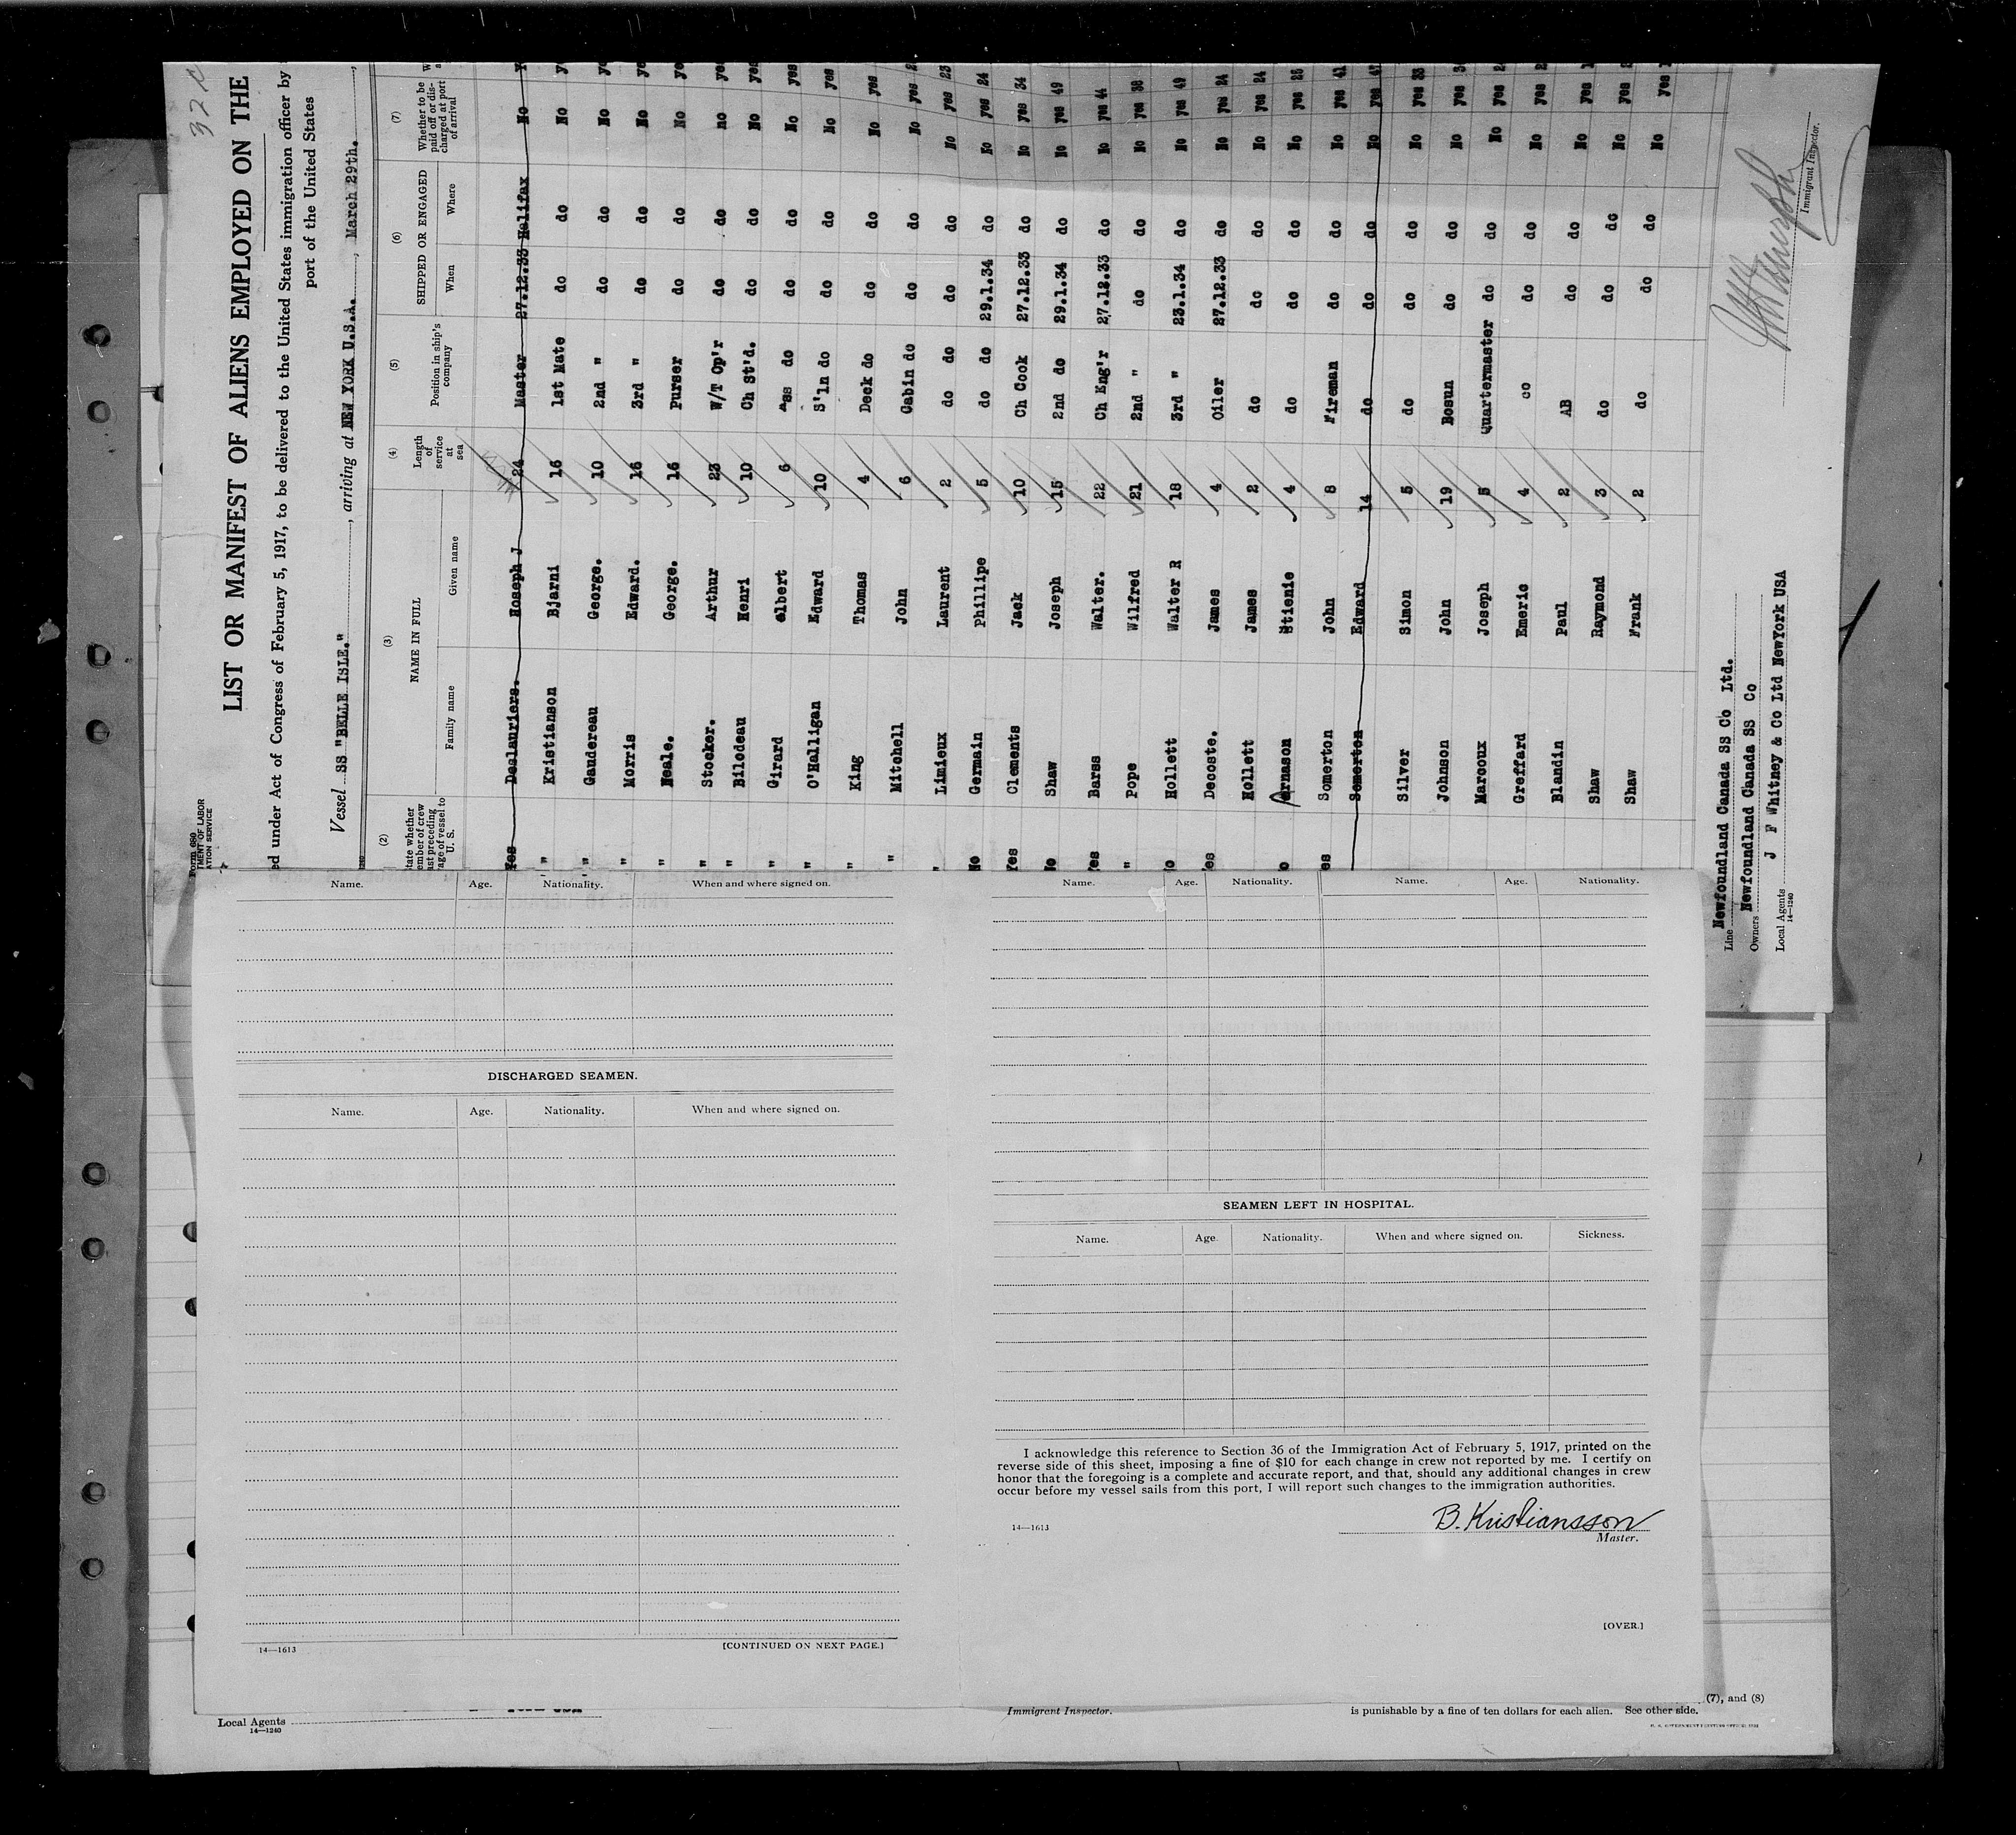 32
Form 680
LIST OR MANIFEST OF ALIENS EMPLOYED ON THE
ed under Act of Congress of February 5, 1917, to be delivered to the United States immigration officer by
port of the United States
Vessel SS "BELLE ISLE." , arriving at NEW YORK U.S.A. , March 29th. ,
(2) (3) (4) (5) (6) (7)
NAME IN FULL Length of service at sea Position in ship's company SHIPPED OR ENGAGED Whether to be paid off or discharged at port of arrival
Family name Given name When Where
Yes Deslauriers. Hoseph J 24 Master 27.12.33 Halifax No
" Kristianson Bjarni 16 1st Mate do do No
" Gaudereau George. 10 2nd " do do No
" Morris Edward. 16 3rd " do do No
" Neale. George. 16 Purser do do No
" Stocker. Arthur 23 W/T Op'r do do no
" Bilodeau Henri 10 Ch St'd. do do No yes
" Girard Albert 6 Ass do do do No yes
" O'Halligan Edward 10 S'ln do do do No yes
" King Thomas 4 Deck do do do No yes
" Mitchell John 6 Cabin do do do No yes
" Limieux Laurent 2 do do do do No yes 23
No Germain Phillipe 5 do do 29.1.34 do No yes 24
Yes Clements Jack 10 Ch Cook 27.12.33 do No yes 34
No Shaw Joseph 15 2nd do 29.1.34 do No yes 49
Yes Barss Walter. 22 Ch Eng'r 27.12.33 do No yes 44
" Pope Wilfred 21 2nd " do do No yes 38
Hollett Walter R 18 3rd " 23.1.34 do No yes 49
Decoste. James 4 Oiler 27.12.33 do No yes 24
Hollett James 2 do do do No yes 24
Arnason Stienie 4 do do do No yes 25
Somerton John 8 Fireman do do No yes 41
Somerton Edward 14 do do do No yes 47
Silver Simon 5 do do do No yes 33
Johnson John 19 Bosun do do No yes
Marcoux Joseph 5 Quartermaster do do No yes
Greffard Emeric 4 do do No yes
Blandin Paul 2 AB do do No yes
Shaw Raymond 3 do do do No yes
Shaw Frank 2 do do do No yes
Line Newfoundland Canada SS Co Ltd.
Owners Newfoundland Canada SS Co
Local Agents J F Whitney & Co Ltd NewYork USA
14—1240
Immigrant Inspector.
Name. Age. Nationality. When and where signed on.
DISCHARGED SEAMEN.
Name. Age. Nationality. When and where signed on.
14—1613 [CONTINUED ON NEXT PAGE.]
Name. Age. Nationality. Name. Age. Nationality.
SEAMEN LEFT IN HOSPITAL.
Name. Age. Nationality. When and where signed on. Sickness.
I acknowledge this reference to Section 36 of the Immigration Act of February 5, 1917, printed on the
reverse side of this sheet, imposing a fine of $10 for each change in crew not reported by me. I certify on
honor that the foregoing is a complete and accurate report, and that, should any additional changes in crew
occur before my vessel sails from this port, I will report such changes to the immigration authorities.
B. Kristiansson
14—1613 Master.
[OVER.]
(7), and (8)
Local Agents Immigrant Inspector. is punishable by a fine of ten dollars for each alien. See other side.
14—1240